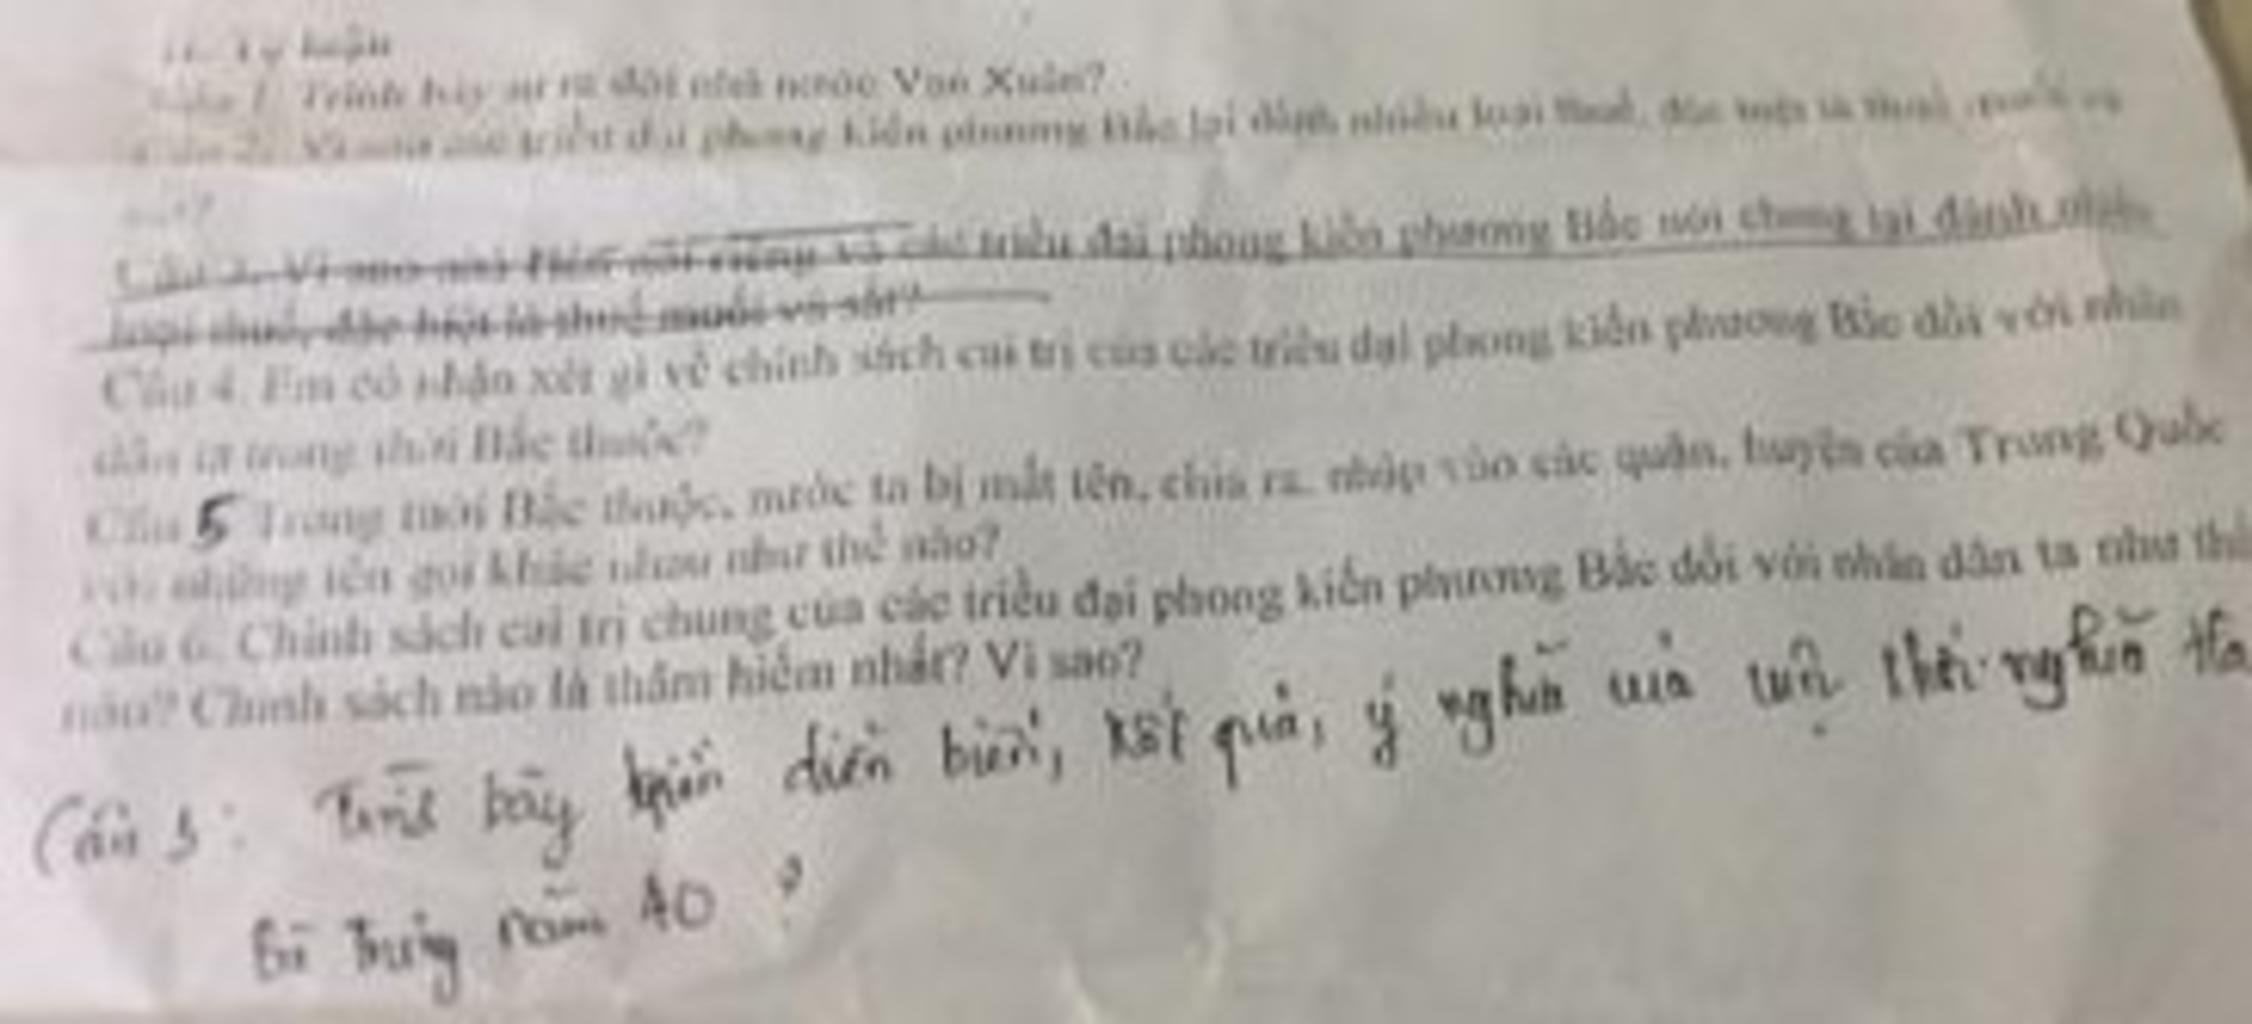 II. Tự luận
Câu 1. Trình bày sự ra đời nhà nước Vạn Xuân?
Câu 2. Vì sao các triều đại phong kiến phương Bắc lại đánh nhiều loại thuế, đặc biệt là thuế muối và
sắt?
Câu 3. Vì sao nhà Hán nói riêng và các triều đại phong kiến phương Bắc nói chung lại đánh nhiều
loại thuế, đặc biệt là thuế muối và sắt?
Câu 4. Em có nhận xét gì về chính sách cai trị của các triều đại phong kiến phương Bắc đối với nhân
dân ta trong thời Bắc thuộc?
Câu 5 Trong thời Bắc thuộc, nước ta bị mất tên, chia ra, nhập vào các quận, huyện của Trung Quốc
với những tên gọi khác nhau như thế nào?
Câu 6. Chính sách cai trị chung của các triều đại phong kiến phương Bắc đối với nhân dân ta như thế
nào? Chính sách nào là thâm hiểm nhất? Vì sao?
Câu 3: Trình bày diễn biến, kết quả, ý nghĩa của cuộc khởi nghĩa Hai
Bà Trưng năm 40 ?